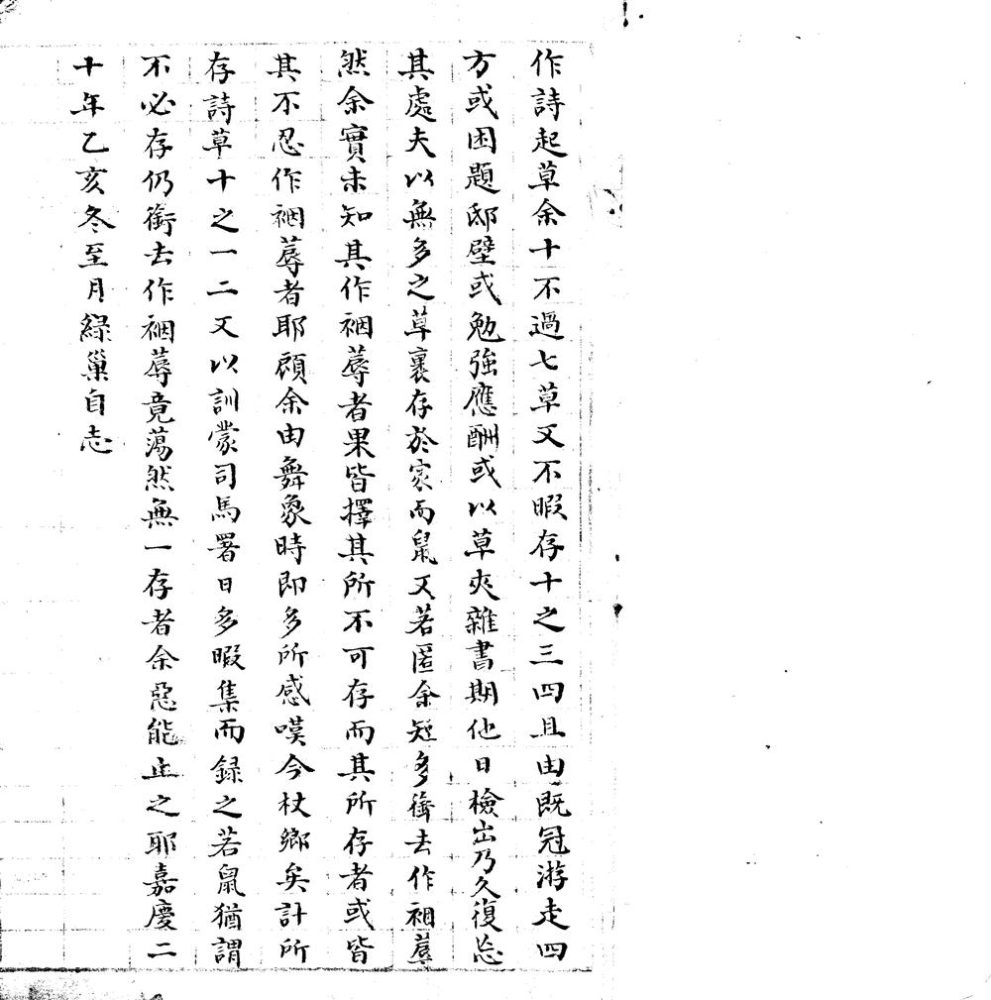 作詩起草余十不過七草又不暇存十之三四且由既冠游走四
方或困題邸壁或勉強應酬或以草夾雜書期他日檢出乃久復忘
其處夫以無多之草裏存於家而鼠又若匿余短多銜去作裀蓐
然余實未知其作裀蓐者果皆擇其所不可存而其所存者或皆
其不忍作裀蓐者耶顧余由舞象時即多所感嘆今杖鄉矣計所
存詩草十之一二又以訓蒙司馬署日多暇集而録之若鼠猶謂
不必存仍銜去作裀蓐竟蕩然無一存者余惡能止之耶嘉慶二
十年乙亥冬至月綠巢自志